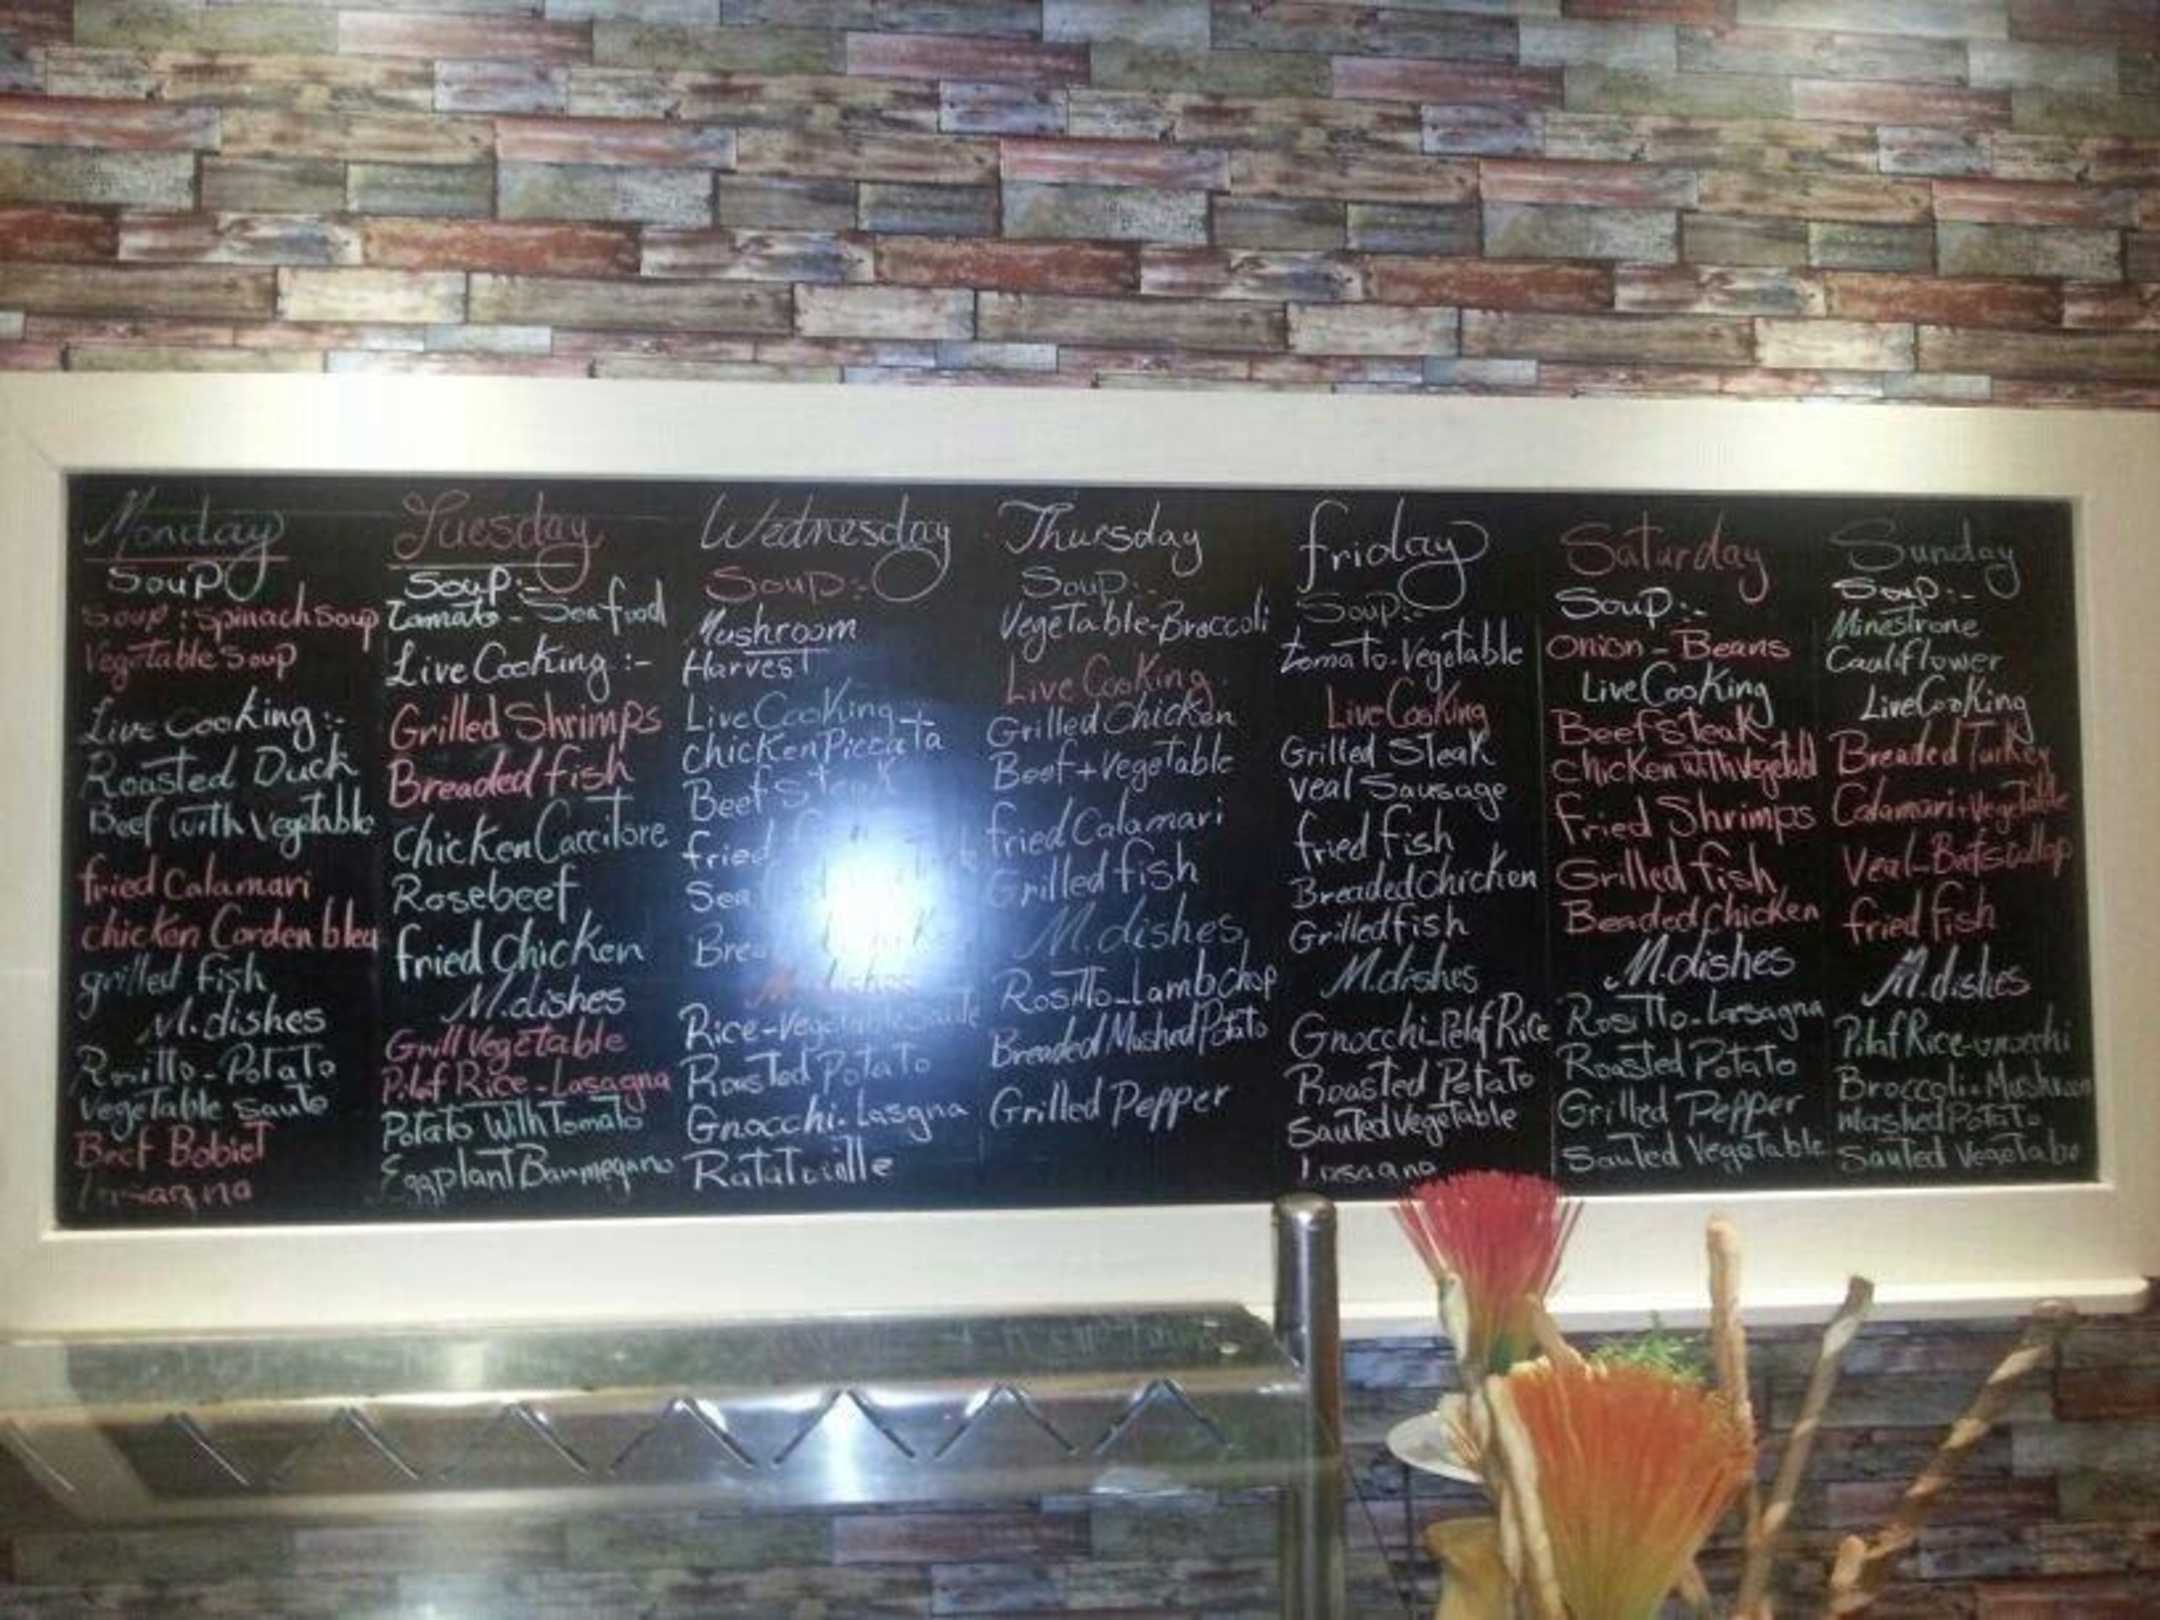 Monday
Soup
Soup : Spinach Soup
Vegetable Soup
Live Cooking :-
Roasted Duck
Beef with Vegetable
fried Calamari
chicken Corden bleu
grilled fish
M.dishes
Rosillo - Potato
Vegetable Saute
Beef Bobiet
Lasagna
Tuesday
Soup :-
Tomato - Sea food
Live Cooking :-
Grilled Shrimps
Breaded fish
Chicken Caccitore
Rosebeef
fried chicken
M.dishes
Grill Vegetable
Pilaf Rice - Lasagna
Potato With Tomato
Eggplant Barmegano
Wednesday
Soup :-
Mushroom
Harvest
Live Cooking
chicken Piccata
Beef Steak
fried
Sea
M.dishes
Rice - Vegetable Saute
Roasted Potato
Gnocchi - Lasgna
Thursday
Soup :-
Vegetable - Broccoli
Live Cooking
Grilled Chicken
Beef + Vegetable
fried Calamari
Grilled fish
M.dishes
Rosillo - Lamb chop
Breaded Mashed Potato
Grilled Pepper
friday
Soup :-
tomato - Vegetable
Live Cooking
Grilled Steak
Veal Sausage
fried fish
Breaded Chicken
Grilled fish
M.dishes
Gnocchi - Pelaf Rice
Roasted Potato
Sauted Vegetable
Lasagna
Saturday
Soup :-
Onion - Beans
Live Cooking
Beef Steak
chicken with Vegetabl
fried Shrimps
Grilled fish
Beaded chicken
M.dishes
Rosillo - Lasagna
Roasted Potato
Grilled Pepper
Sauted Vegetable
Sunday
Soup :-
Minestrone
Cauliflower
Live Cooking
Breaded Turkey
Calamari + Vegetable
Veal
fried fish
M.dishes
Pilaf Rice - Gnocchi
Broccoli - Mushroom
Mashed Potato
Sauted Vegetable